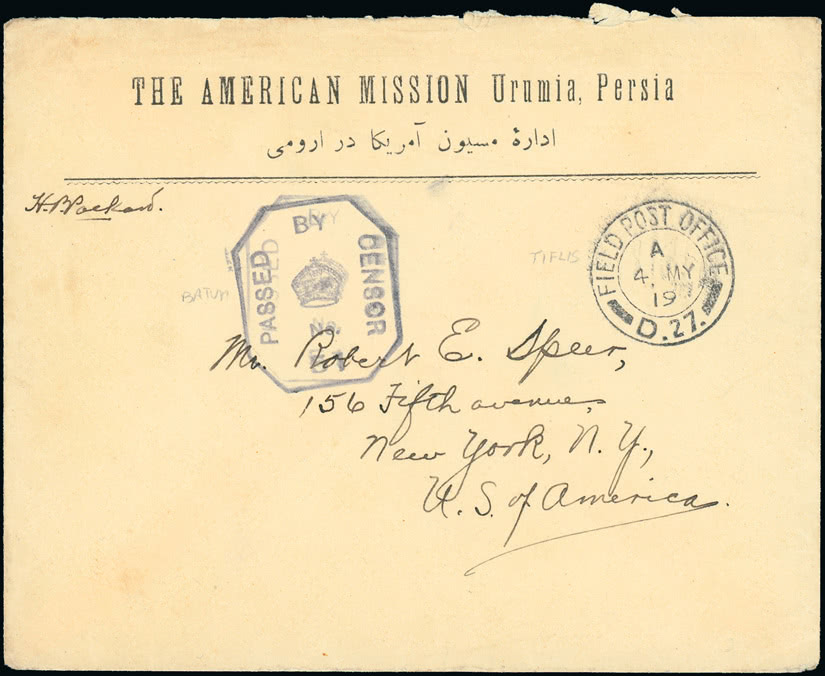 THE AMERICAN MISSION Urumia, Persia
ادارهٔ مسیون آمریکا در ارومی
PASSED BY CENSOR
No.
BATUM
TIFLIS
FIELD POST OFFICE
A
4 MY
19
D.27.
Mr. Robert E. Speer,
156 Fifth avenue,
New York, N. Y.,
U. S. of America.